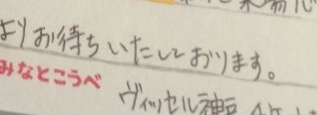 よりお待ちいたしております。
みなとこうべ
ヴィッセル神戸